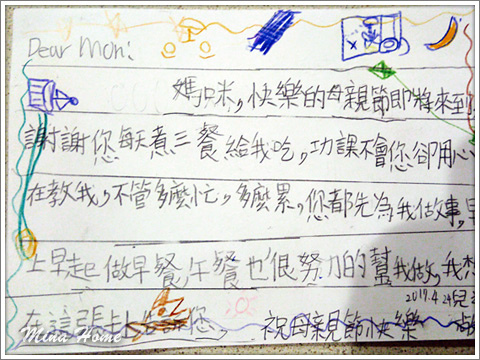 Dear Mom:
媽咪，快樂的母親節即將來到
謝謝您每天煮三餐給我吃，功課不會您卻用心
在教我，不管多麼忙，多麼累，您都先為我做事，早
上早起做早餐，午餐也很努力的幫我做，我想
2017.4.24 兒
在這張卡 您 祝母親節快樂
Mina Home